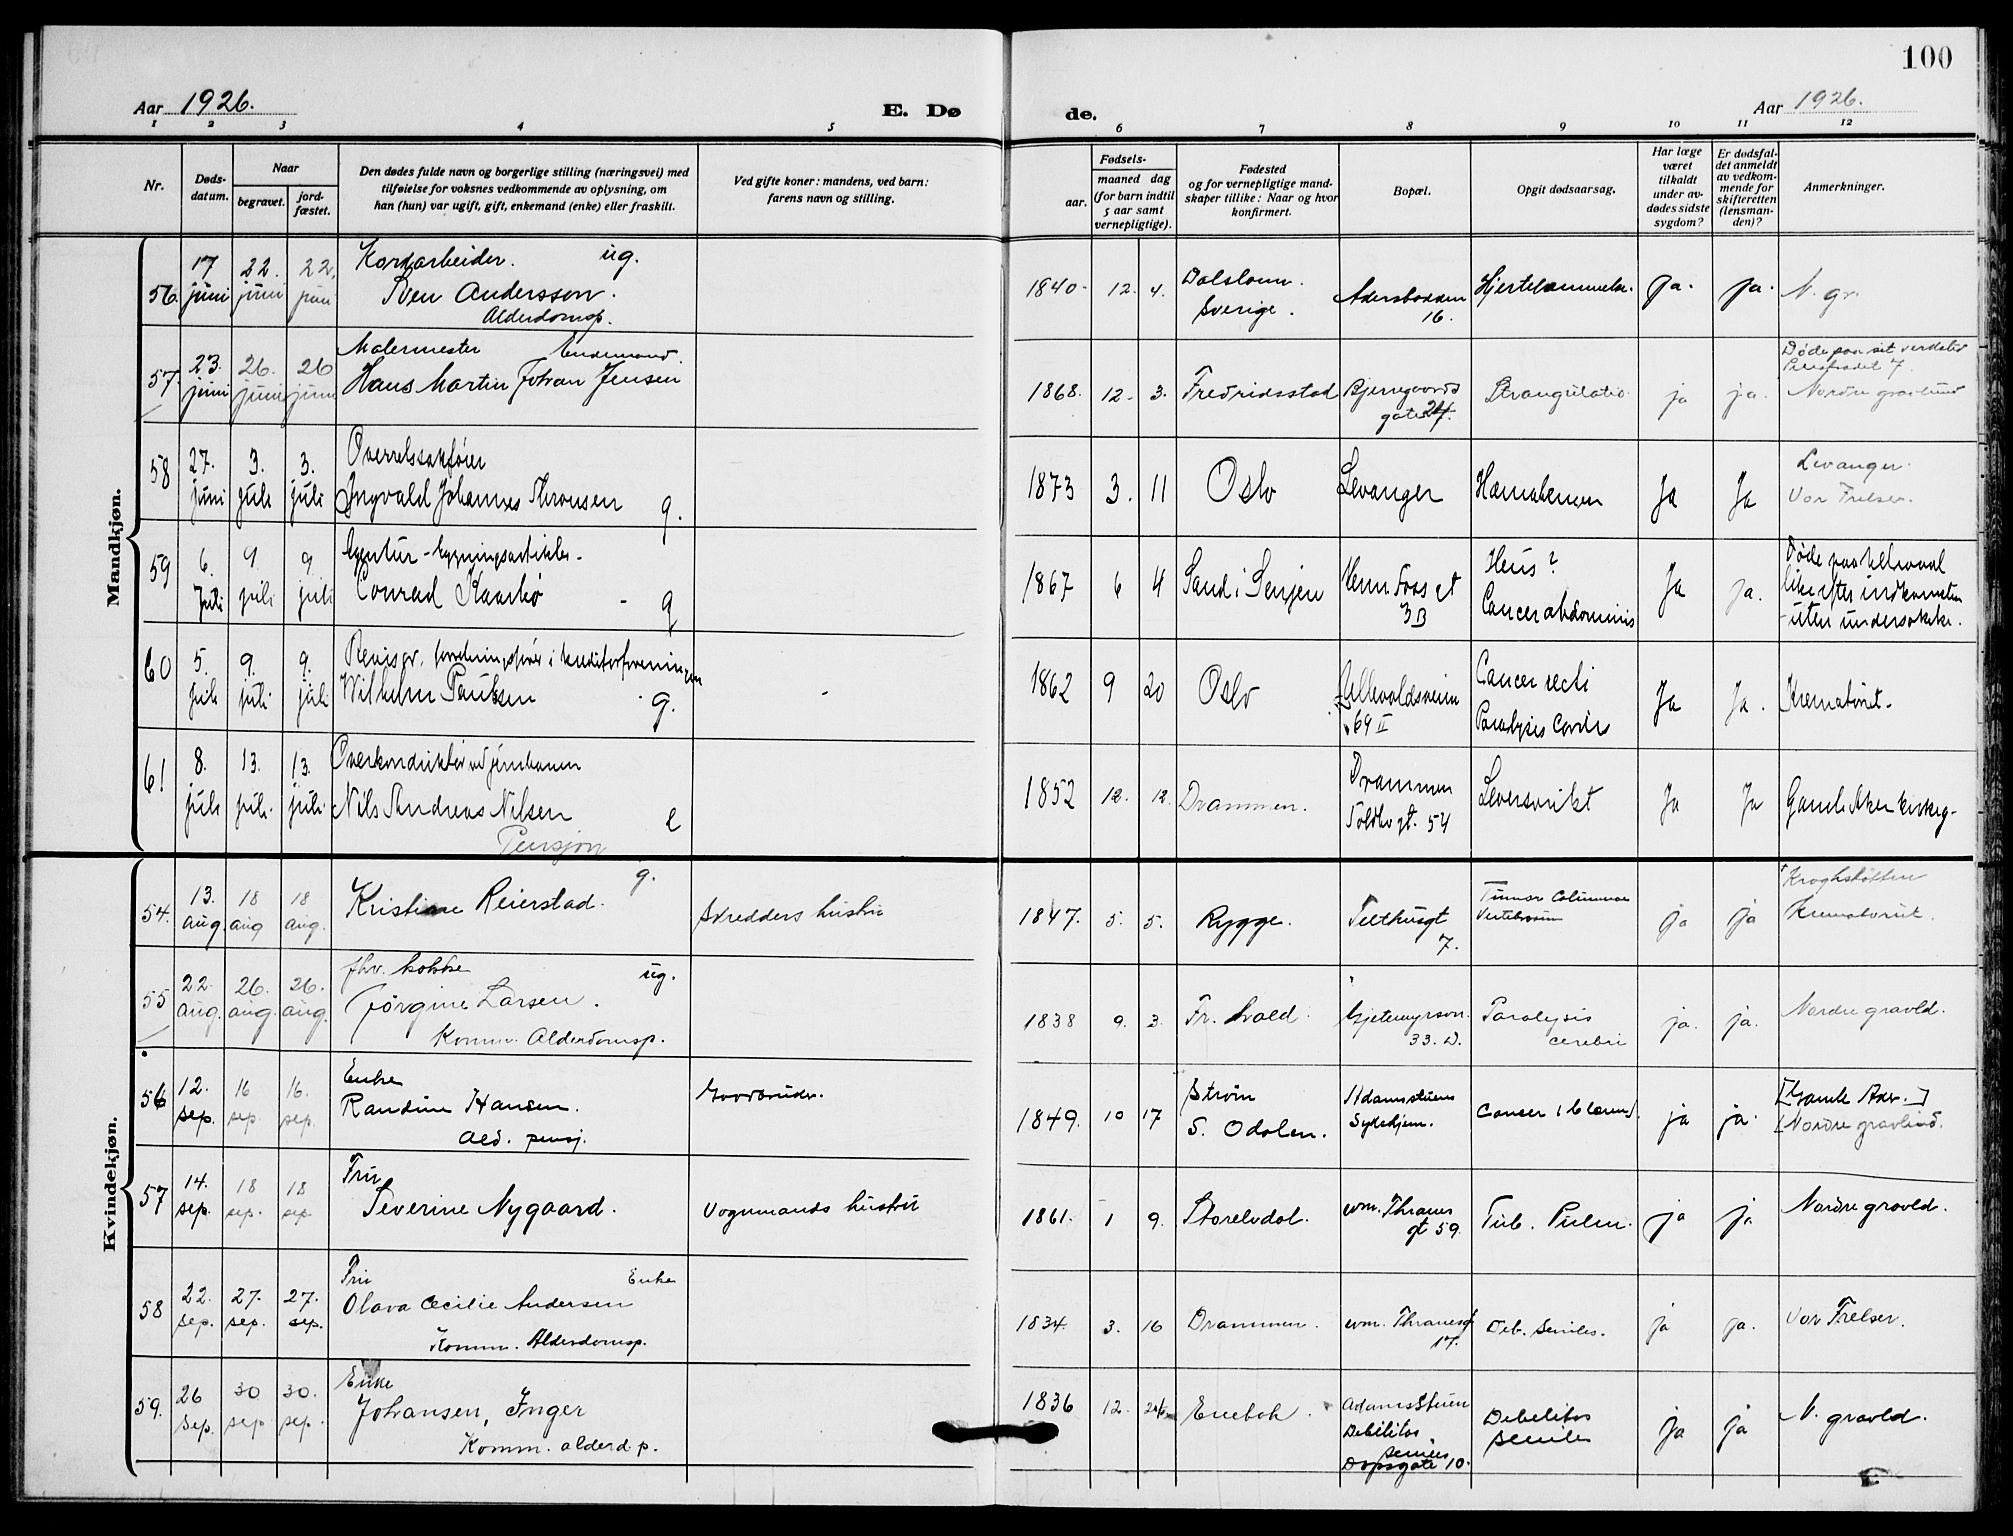 100
Aar 1926. E. Dø de. Aar 1926.
1 2 3 4 5 6 7 8 9 10 11 12
Nr. Døds-datum. Naar begravet. jord-fæstet. Den dødes fulde navn og borgerlige stilling (næringsvei) med tilføielse for voksnes vedkommende av oplysning, om han (hun) var ugift, gift, enkemand (enke) eller fraskilt. Ved gifte koner: mandens, ved barn: farens navn og stilling. Fødsels- aar. maaned dag (for barn indtil 5 aar samt vernepligtige). Fødested og for vernepligtige mandskaper tillike: Naar og hvor konfirmert. Bopæl. Opgit dødsaarsag. Har læge været tilkaldt under avdødes sidste sygdom? Er dødsfaldet anmeldt av vedkommende for skifteretten (lensmanden)? Anmerkninger.
Mandkjøn.
56. 17 juni 22. juni 22. juni Kordarbeider. ug. Sven Andersson. Alderdomsp. 1840. 12. 4. Sverige. 16. ja. ja. N. gr.
57. 23. juni 26. juni 26 juni Malermester Enkemand. Hans Martin Johan Jensen 1868. 12. 3. Fredriksstad Bjerregaards gate 24. Strangulatio ja ja. Nordre gravlund
58 27. juni 3. juli 3. juli Overretssakfører Ingvald Johannes Thronsen g. 1873 3. 11 Oslo Levanger Ja Ja Levanger. Vor Frelser.
59 6. Juli 9 juli 9 juli Agentur - bygningsartikler. Conrad Kaarbø g 1867 6 4 Sand i Senjen Herm. Foss gt 3B Ileus? Cancer abdominis Ja ja. Døde paa Ullevaal like efter indkomsten - uten undersøkelse.
60 5. juli 9. juli 9. juli Revisor, forretningsfører i kreditorforeningen Wilhelm Paulsen g. 1862 9 20 Oslo Ullevoldsveien 69 II Cancer recti Paralysis cordis Ja Ja. Krematoriet.
61 8. juli 13. juli. 13. juli Overkonduktør ved jernbanen Nils Andreas Nilsen e Pensjon 1852 12. 12. Drammen. Drammen Toldbogt. 54 Leversvikt Ja Ja Gamle Aker kirkeg.
Kvindekjøn.
54. 13. aug. 18 aug 18 aug. g. Kristine Reierstad. Skredders hustru 1847. 5. 5. Rygge. Telthusgt 7. Tumor Columnae Vertebrarum ja ja Kroghstøtten Krematoriet.
55 22. aug. 26. aug. 26. aug. fhv. kokke ug. Jørgine Larsen. Komm. Alderdomsp. 1838 9. 3. Fr. hald. Gjetemyrsvn. 33. D. Paralysis cerebri ja. ja. Nordre gravld.
56 12. sep. 16 sep. 16. sep. Enke Randine Hansen. Ald. pensj. Gaardbruker. 1849. 10 17 Strøm S. Odalen. Adamstuens Sykehjem. ja ja. [Gamle Aker.] [Nordre gravlund.
57 14. sep. 18 sep. 18 sep Fru Severine Nygaard. Vognmands hustru 1861. 1 9. Storelvdal. wm. Thranes gt 59. Tub. Pulm. ja ja Nordre gravld.
58 22. sep. 27. sep. 27. sep. Fru Enke Olava Cecilie Andersen Komm. Alderdomsp. 1834. 3. 16 Drammen. wm. Thranesgt 17. Deb. Seniles. ja ja. Vor Frelser.
59. 26 sep. 30 sep 30. sep. Enke Johansen, Inger Komm. alderd. p. 1836 12. Enebok. Adamsstuen Debilitas seniles Dopsgate 10. Debelitas seniles ja ja N. gravld.